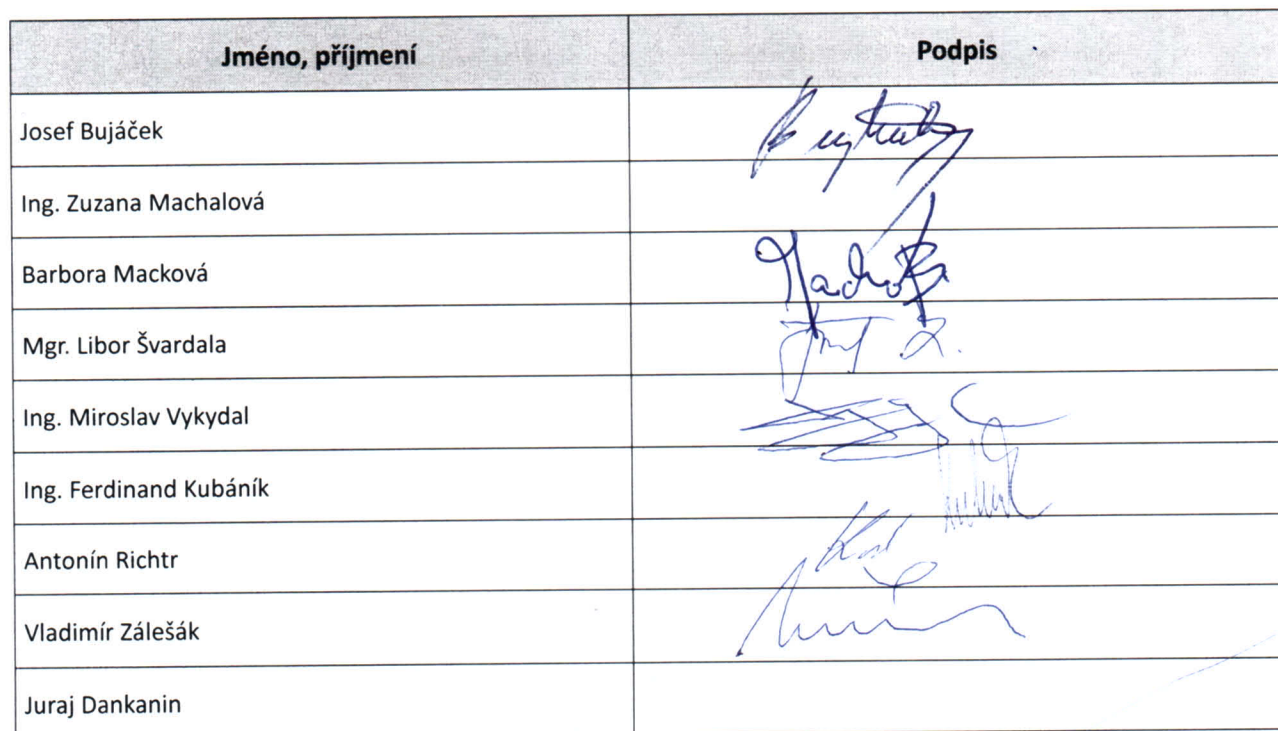 Jméno, příjmení Podpis
Josef Bujáček
Ing. Zuzana Machalová
Barbora Macková
Mgr. Libor Švardala
Ing. Miroslav Vykydal
Ing. Ferdinand Kubáník
Antonín Richtr
Vladimír Zálešák
Juraj Dankanin